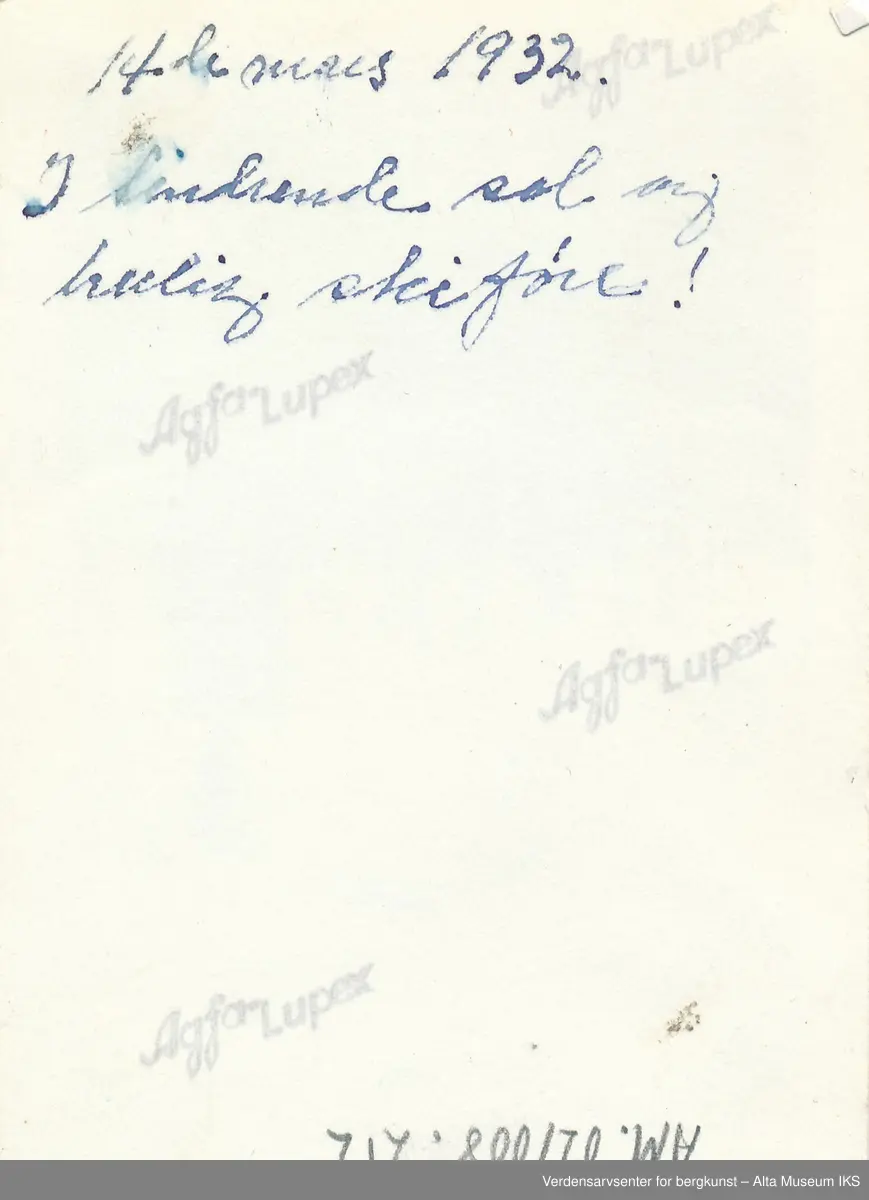 14de mars 1932.
I tindrende sol og
herlig skiføre!
Agfa-Lupex
Agfa-Lupex
Agfa-Lupex
Agfa-Lupex
AM.
Verdensarvsenter for bergkunst – Alta Museum IKS